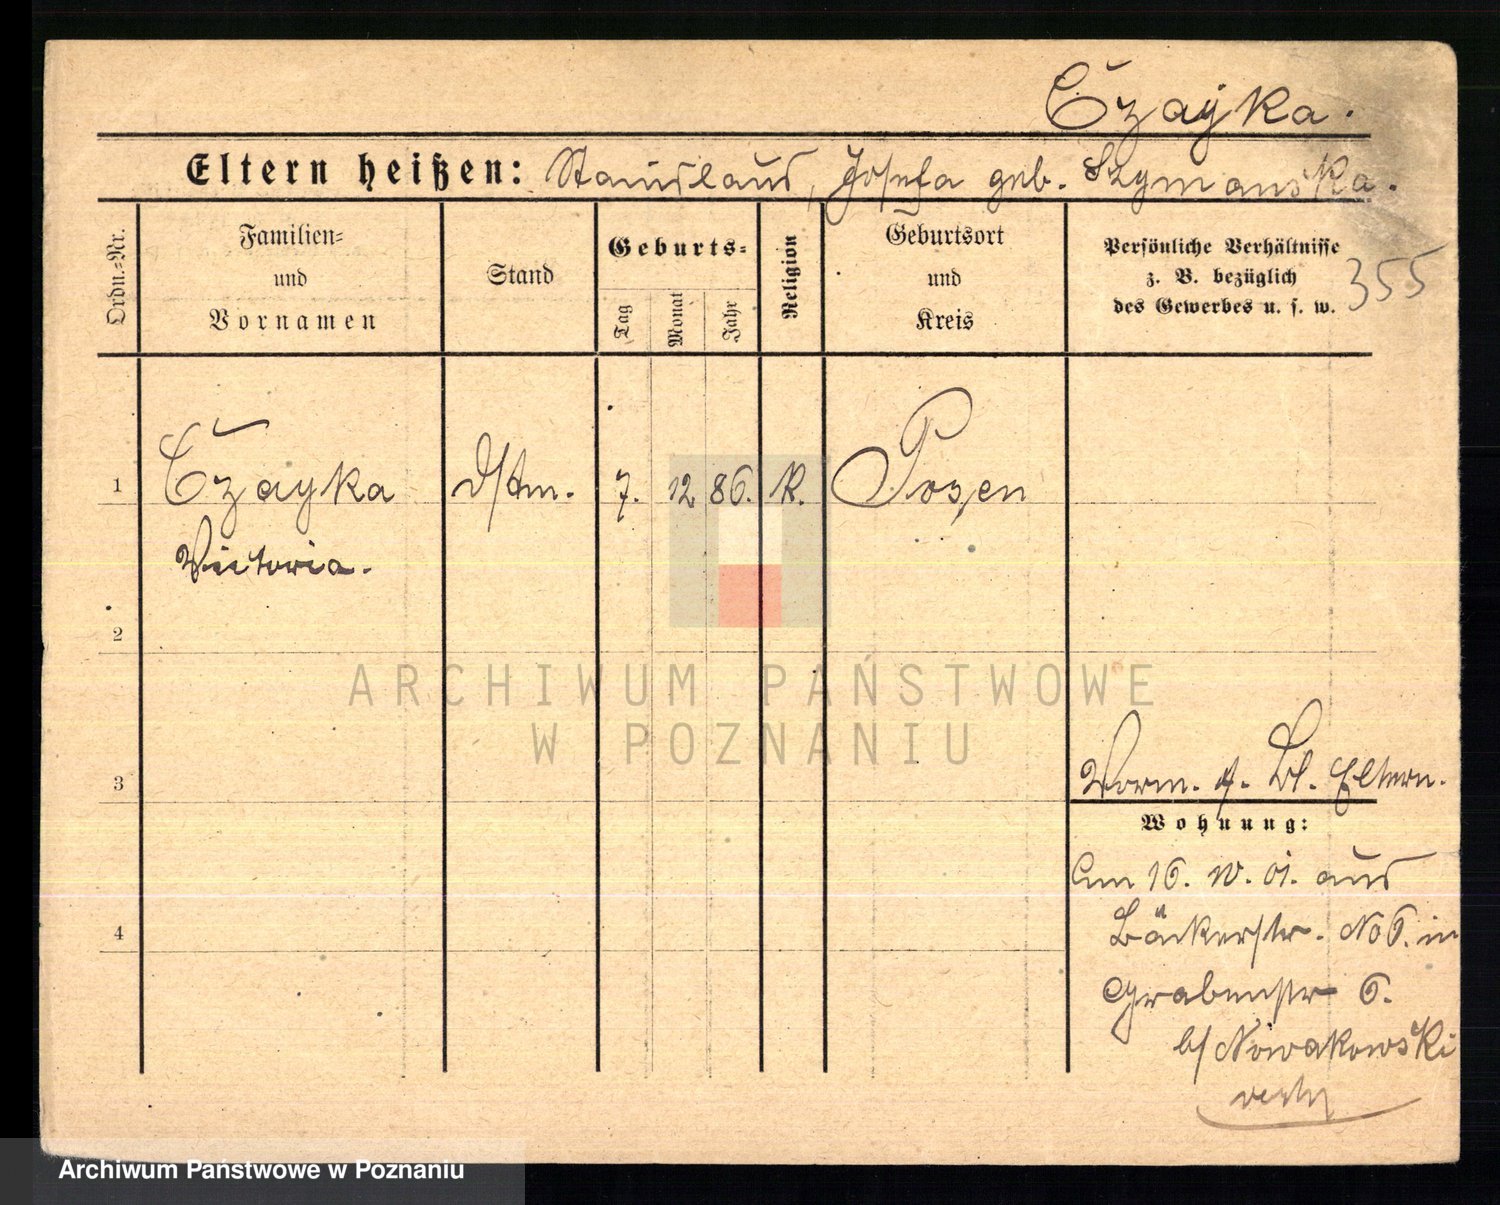 Czayka.
Eltern heißen: Stanislaus, Josefa geb. Szymanska.
Ordn.-Nr.
Familien-
und
Vornamen
Stand
Geburts-
Tag
Monat
Jahr
Religion
Geburtsort
und
Kreis
Persönliche Verhältnisse
z. B. bezüglich
des Gewerbes u. s. w.
355
1
Czayka
Dstm.
7.
12
86.
K.
Posen
Victoria.
2
ARCHIWUM PAŃSTWOWE
W POZNANIU
3
Eltern.
Wohnung:
Am 16. 10. 01. aus
Bäckerstr. No 6. in
4
Grabenstr 6.
b/ Nowakowski
Archiwum Państwowe w Poznaniu